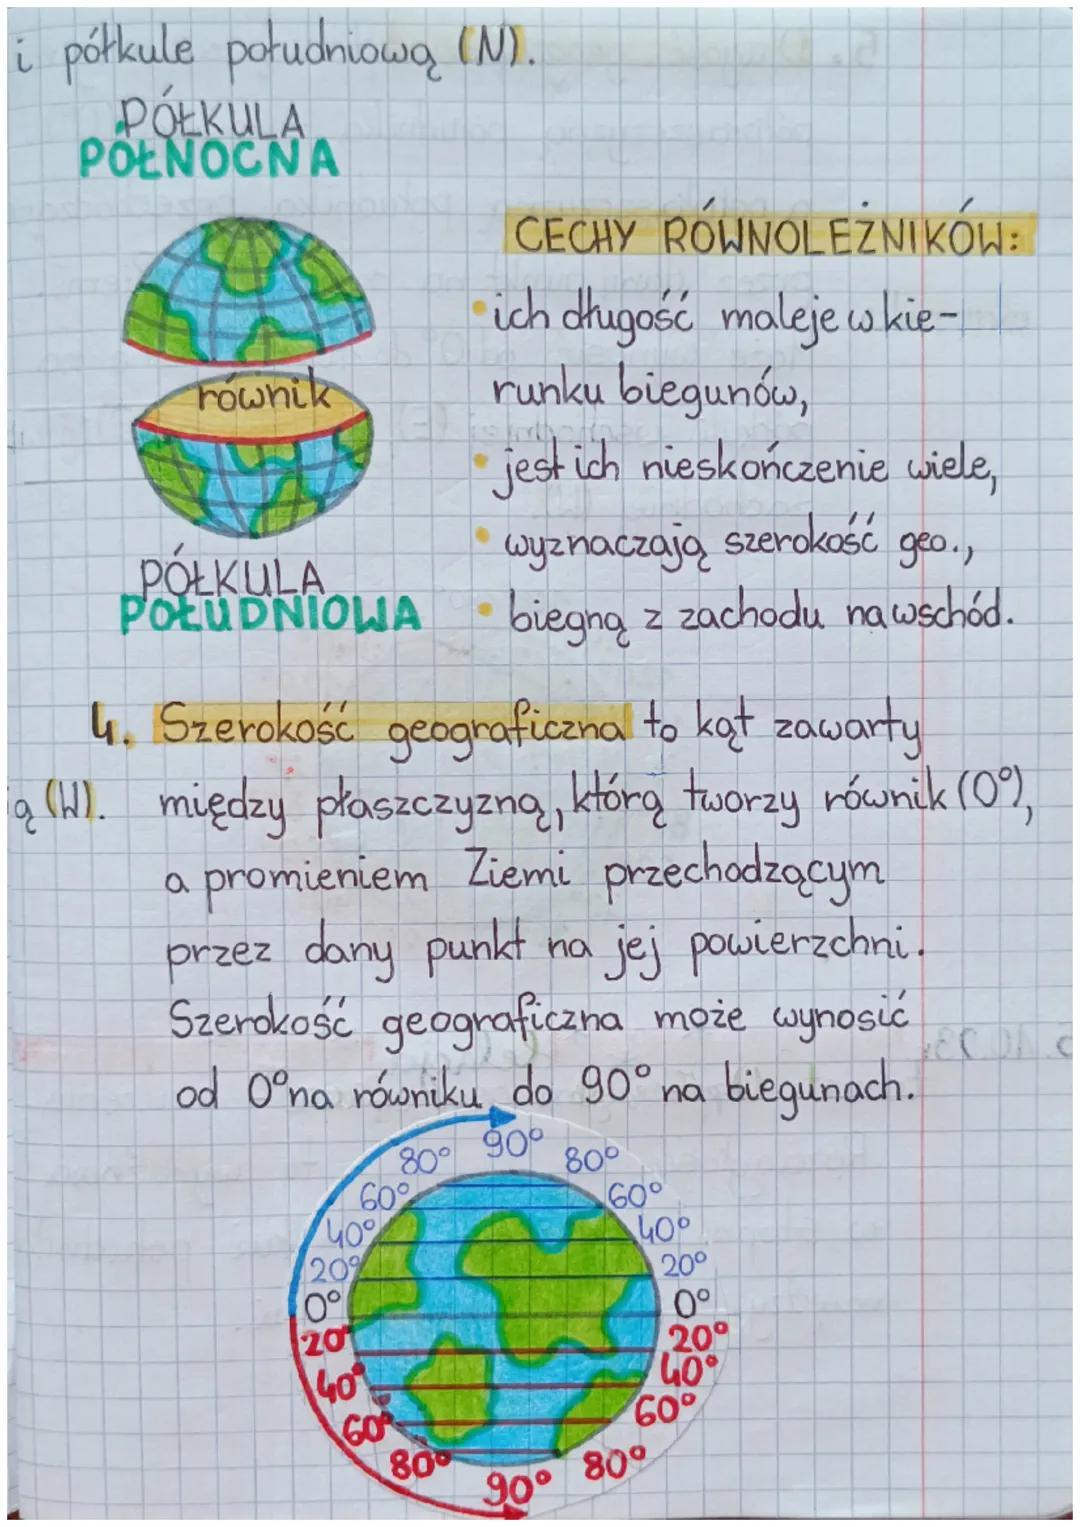 i półkule południową (N).
PÓŁKULA
PÓŁNOCNA
równik
PÓŁKULA
POŁUDNIOWA
CECHY RÓWNOLEŻNIKÓW:
• ich długość maleje w kie-
runku biegunów,
• jest ich nieskończenie wiele,
• wyznaczają szerokość geo.,
• biegną z zachodu na wschód.
4. Szerokość geograficzna to kąt zawarty
ą (W). między płaszczyzną, którą tworzy równik (0°),
a promieniem Ziemi przechodzącym
przez dany punkt na jej powierzchni.
Szerokość geograficzna może wynosić
od 0° na równiku do 90° na biegunach.
90°
80° 80°
60° 60°
40° 40°
20° 20°
0° 0°
20° 20°
40° 40°
60° 60°
80° 80°
90°